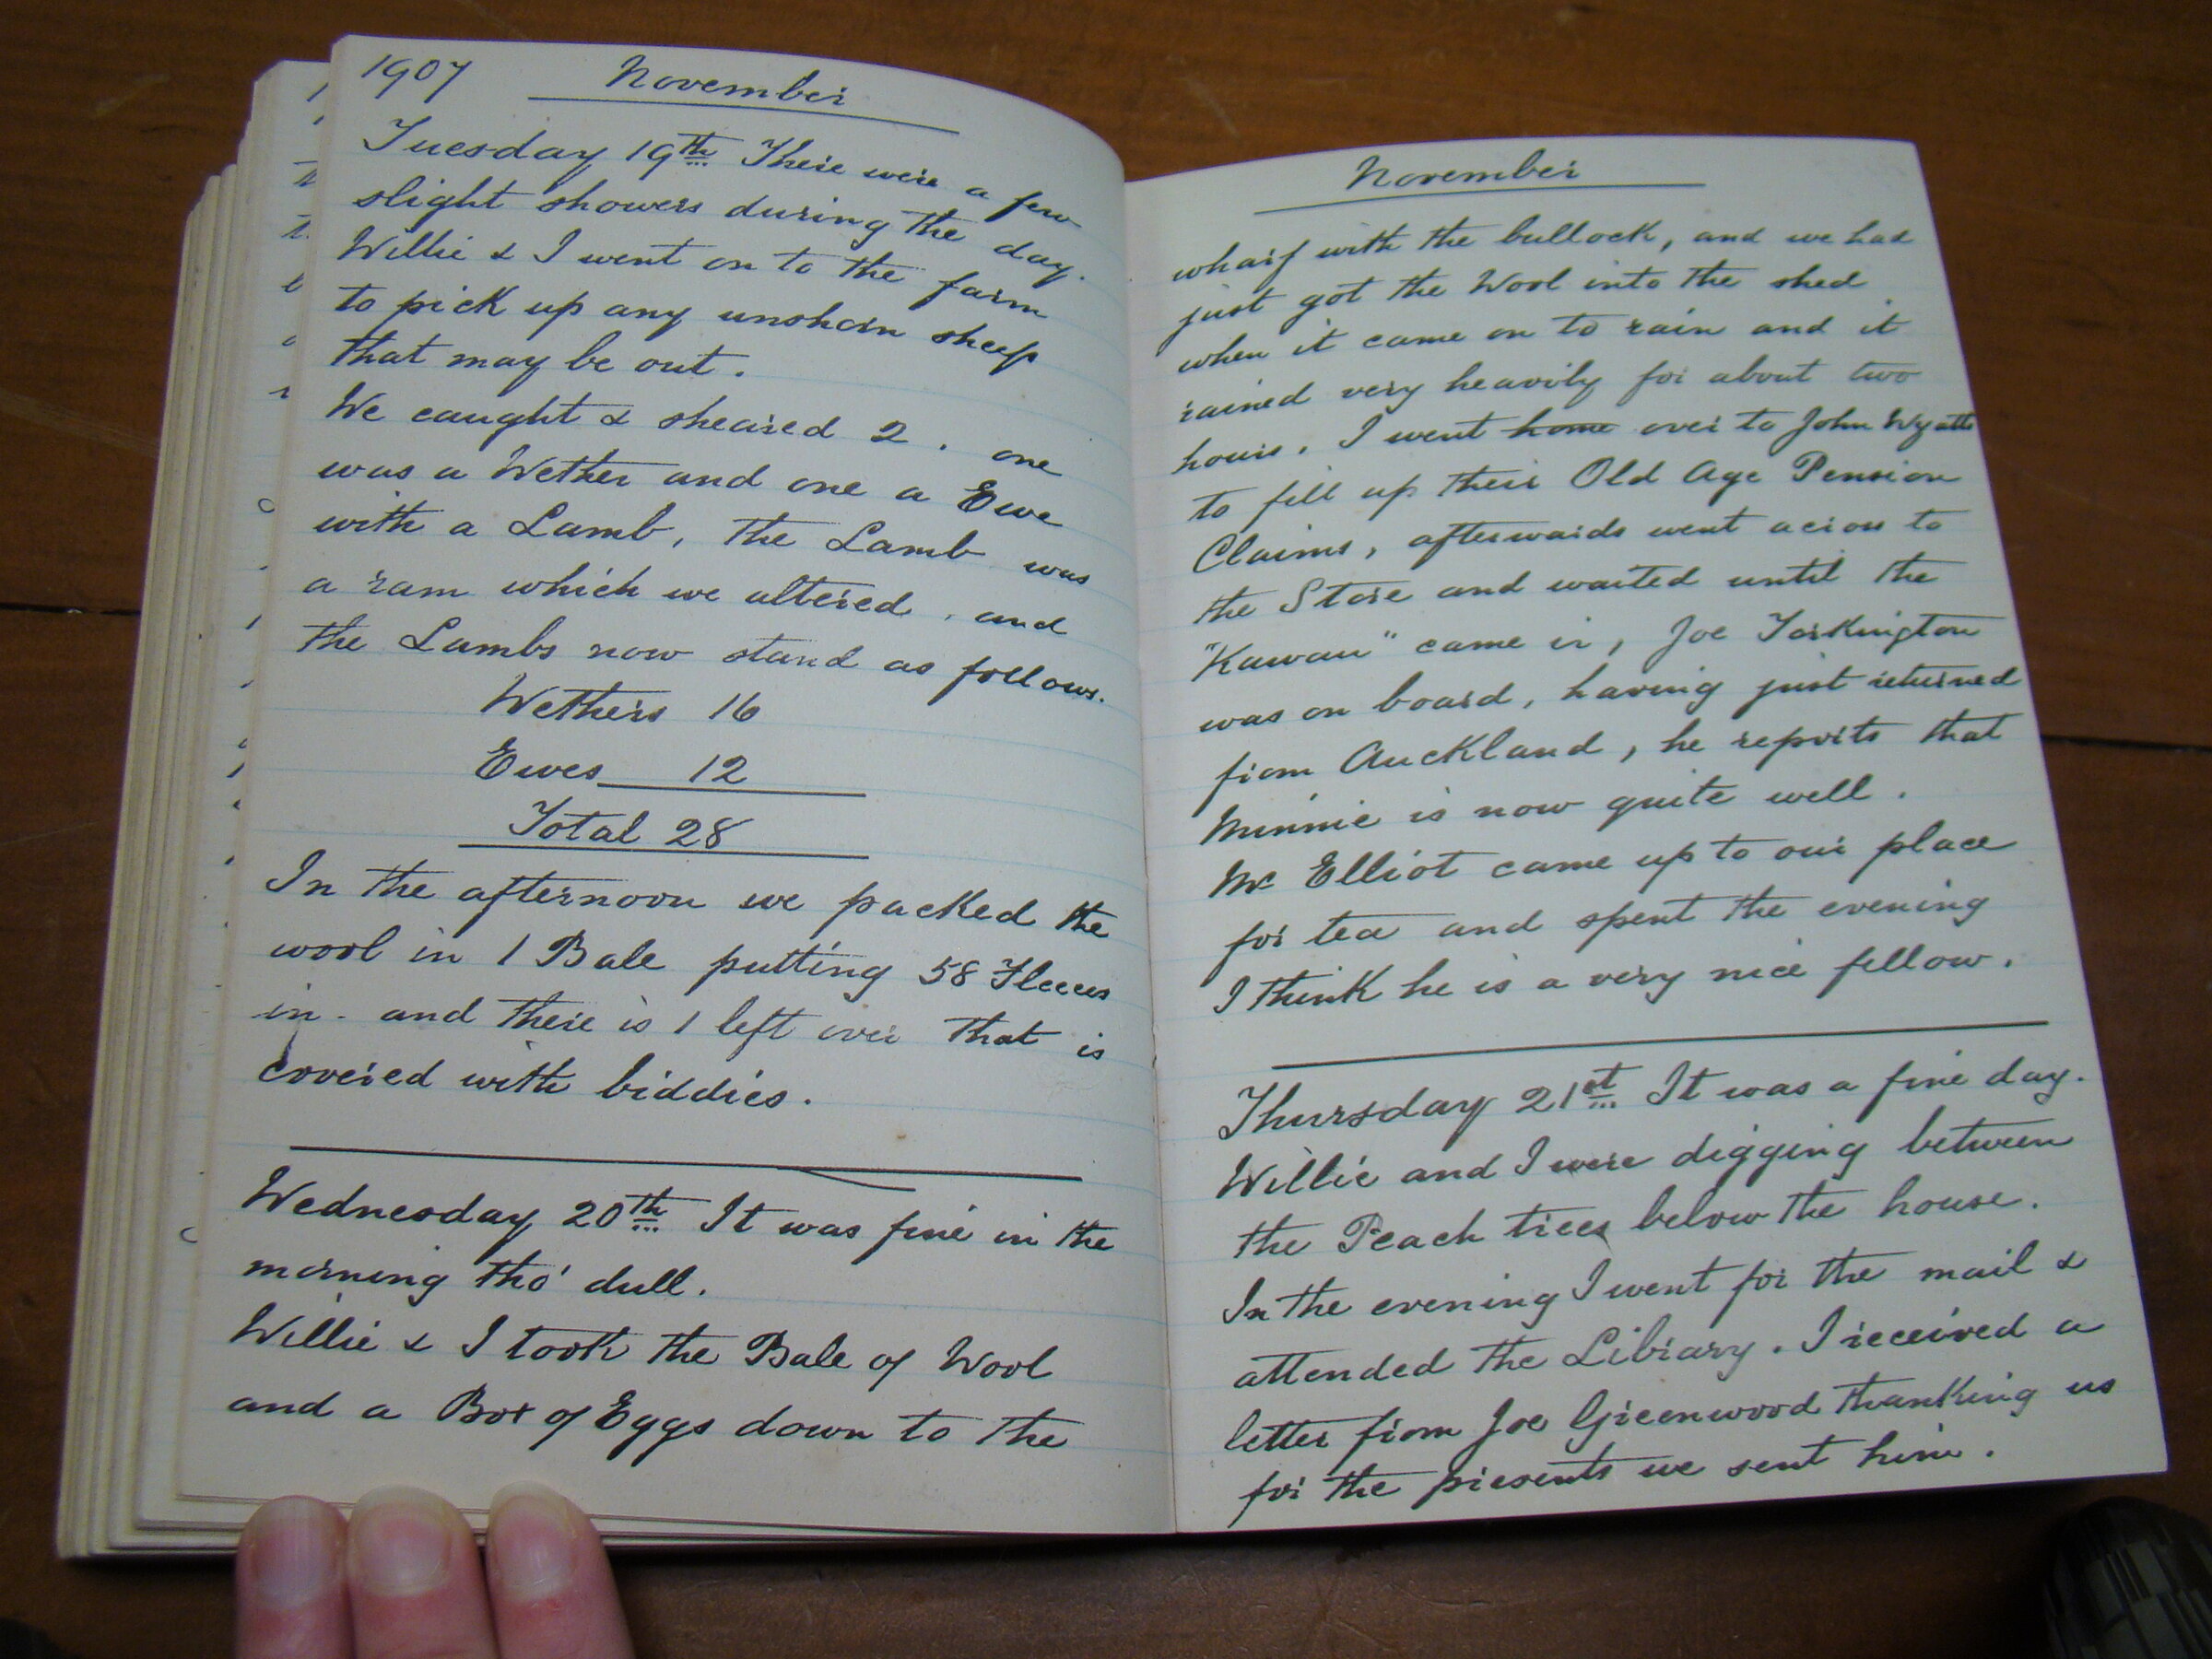 1907 November
Tuesday 19th There were a few
slight showers during the day.
Willie & I went on to the farm
to pick up any unshorn sheep
that may be out.
We caught & sheared 2. one
was a Wether and one a Ewe
with a Lamb, the Lamb was
a ram which we altered, and
the Lambs now stand as follows.
Wethers 16
Ewes 12
Total 28
In the afternoon we packed the
wool in 1 Bale putting 58 Fleeces
in - and there is 1 left over that is
covered with biddies.
Wednesday 20th It was fine in the
morning tho' dull.
Willie & I took the Bale of Wool
and a Box of Eggs down to the
November
wharf with the bullock, and we had
just got the Wool into the shed
when it came on to rain and it
rained very heavily for about two
hours. I went home over to John Wyatts
to fill up their Old Age Pension
Claims, afterwards went across to
the Store and waited until the
"Kawau" came in, Joe Torkington
was on board, having just returned
from Auckland, he reports that
Minnie is now quite well.
Mr Elliot came up to our place
for tea and spent the evening
I think he is a very nice fellow.
Thursday 21st It was a fine day.
Willie and I were digging between
the Peach trees below the house.
In the evening I went for the mail &
attended the Library. I received a
letter from Joe Greenwood thanking us
for the presents we sent him.